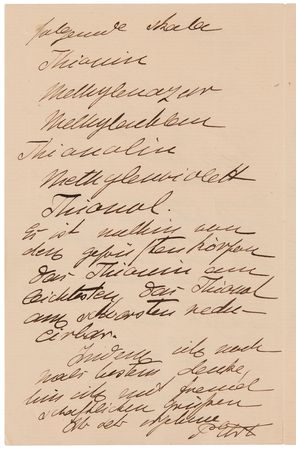 folgende Skala
Thionin
Methylenazur
Methylenblau
Thionolin
Methylenviolett
Thionol.
Es ist mithin von
den geprüften Körpern
das Thionin am
leichtesten, das Thionol
am schwersten redu-
cirbar.
Indem ich noch
mals bestens danke,
bin ich mit freund
schaftlichen Grüssen
Ihr sehr ergebener